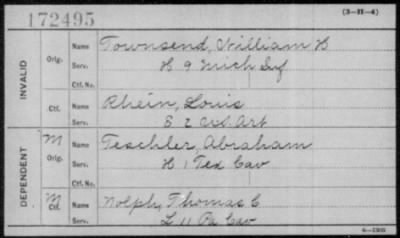 172495
(3-11-4)
INVALID
Orig. Name Townsend, William H
Serv. H 9 Mich Inf
Ctf. No.
Ctf. Name Rhein, Louis
Serv. E 2 Art
DEPENDENT
M Orig. Name Teschler, Abraham
Serv. H 1 Tex Cav
Ctf. No.
M Ctf. Name Nolph, Thomas C
Serv. L 11 Pa Cav